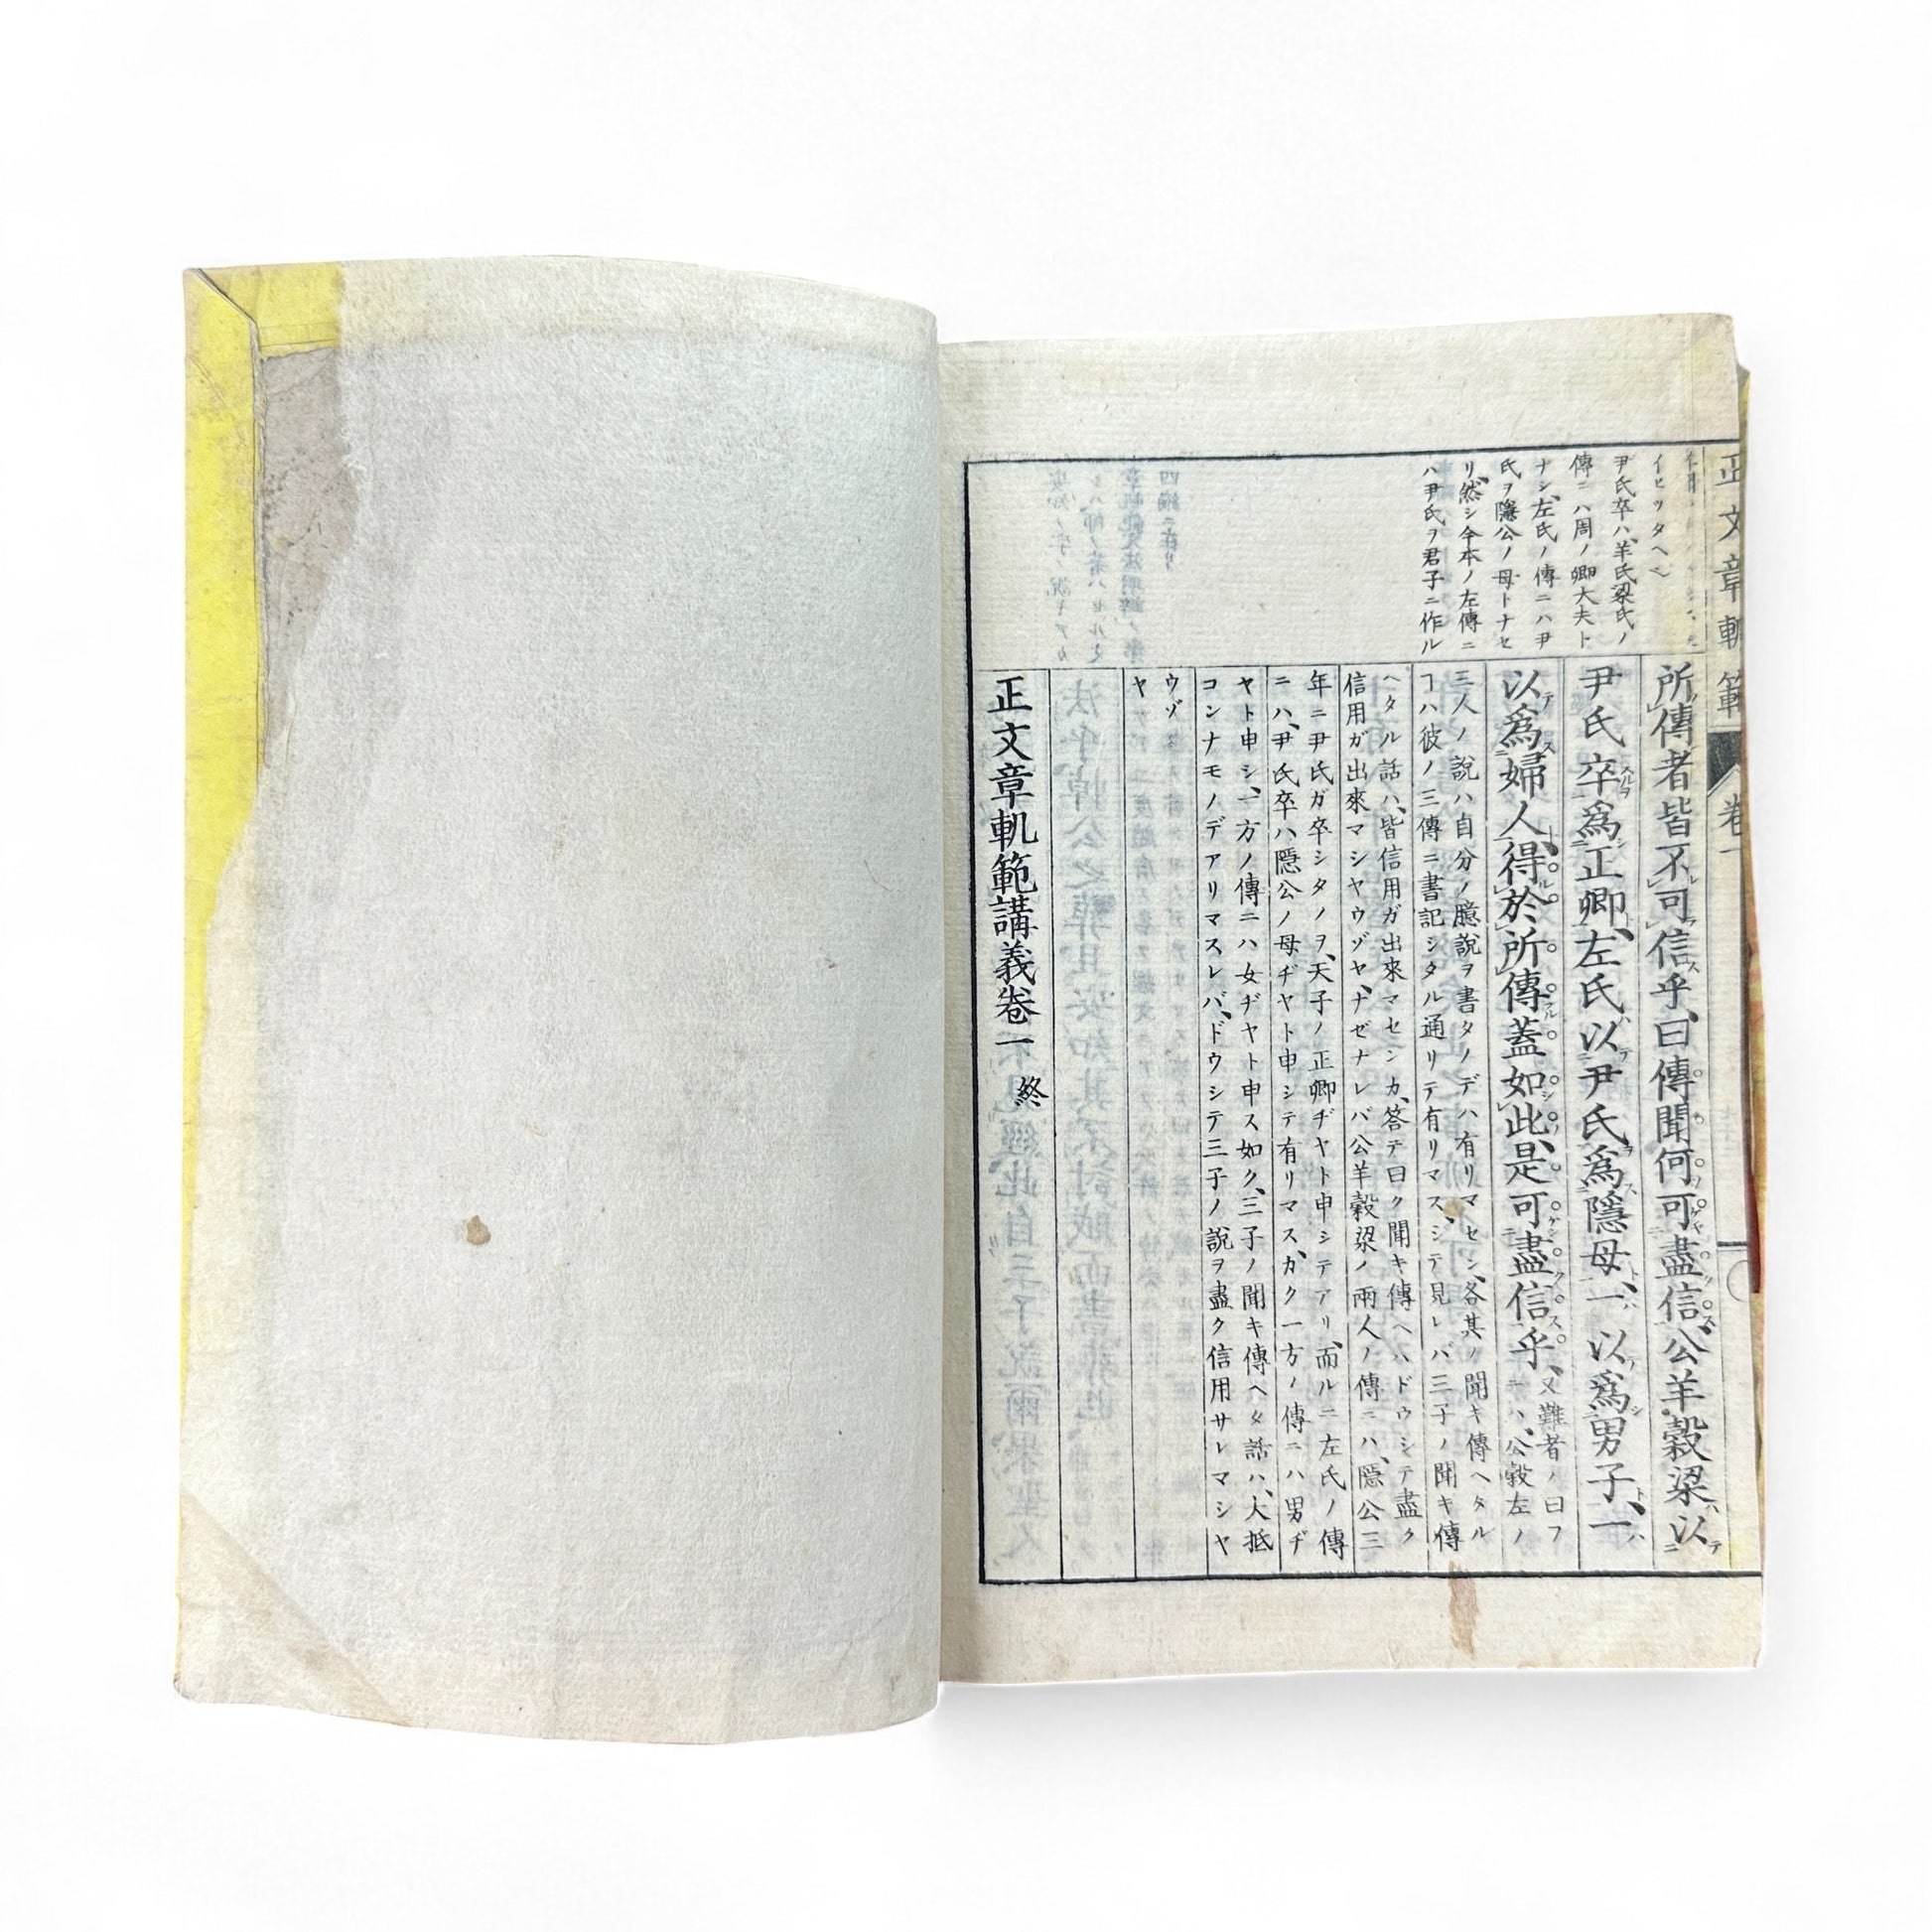 正文章軌範
卷一
イヒツタヘ
尹氏卒ハ、羊氏梁氏ノ
傳ニハ周ノ卿大夫ト
ナシ、左氏ノ傳ニハ尹
氏ヲ隱公ノ母トナセ
リ、然シ今本ノ左傳ニ
ハ尹氏ヲ君子ニ作ル
所傳者皆不可信乎、曰傳聞何可盡信、公羊穀梁以
尹氏卒爲正卿、左氏以尹氏爲隱母、一以爲男子、一
以爲婦人、得於所傳蓋如此、是可盡信乎、
又難者ノ曰フ
ニハ、公穀左ノ
三人ノ說ハ自分ノ臆說ヲ書タノデハ有リマセン、各其ノ聞キ傳ヘタル
ヿハ彼ノ三傳ニ書記シタル通リテ有リマス、シテ見レバ三子ノ聞キ傳
ヘタル話ハ、皆信用ガ出來マセンカ、答テ曰ク聞キ傳ヘハドウシテ盡ク
信用ガ出來マシヤウゾヤ、ナゼナレバ公羊穀梁ノ兩人ノ傳ニハ、隱公三
年ニ尹氏ガ卒シタノヲ、天子ノ正卿ヂヤト申シテアリ、而ルニ左氏ノ傳
ニハ、尹氏卒ハ隱公ノ母ヂヤト申シテ有リマス、カク一方ノ傳ニハ男ヂ
ヤト申シ、一方ノ傳ニハ女ヂヤト申ス如ク、三子ノ聞キ傳ヘタ話ハ、大抵
コンナモノデアリマスレバ、ドウシテ三子ノ說ヲ盡ク信用サレマシヤ
ウゾ
ヤ
正文章軌範講義卷一 終